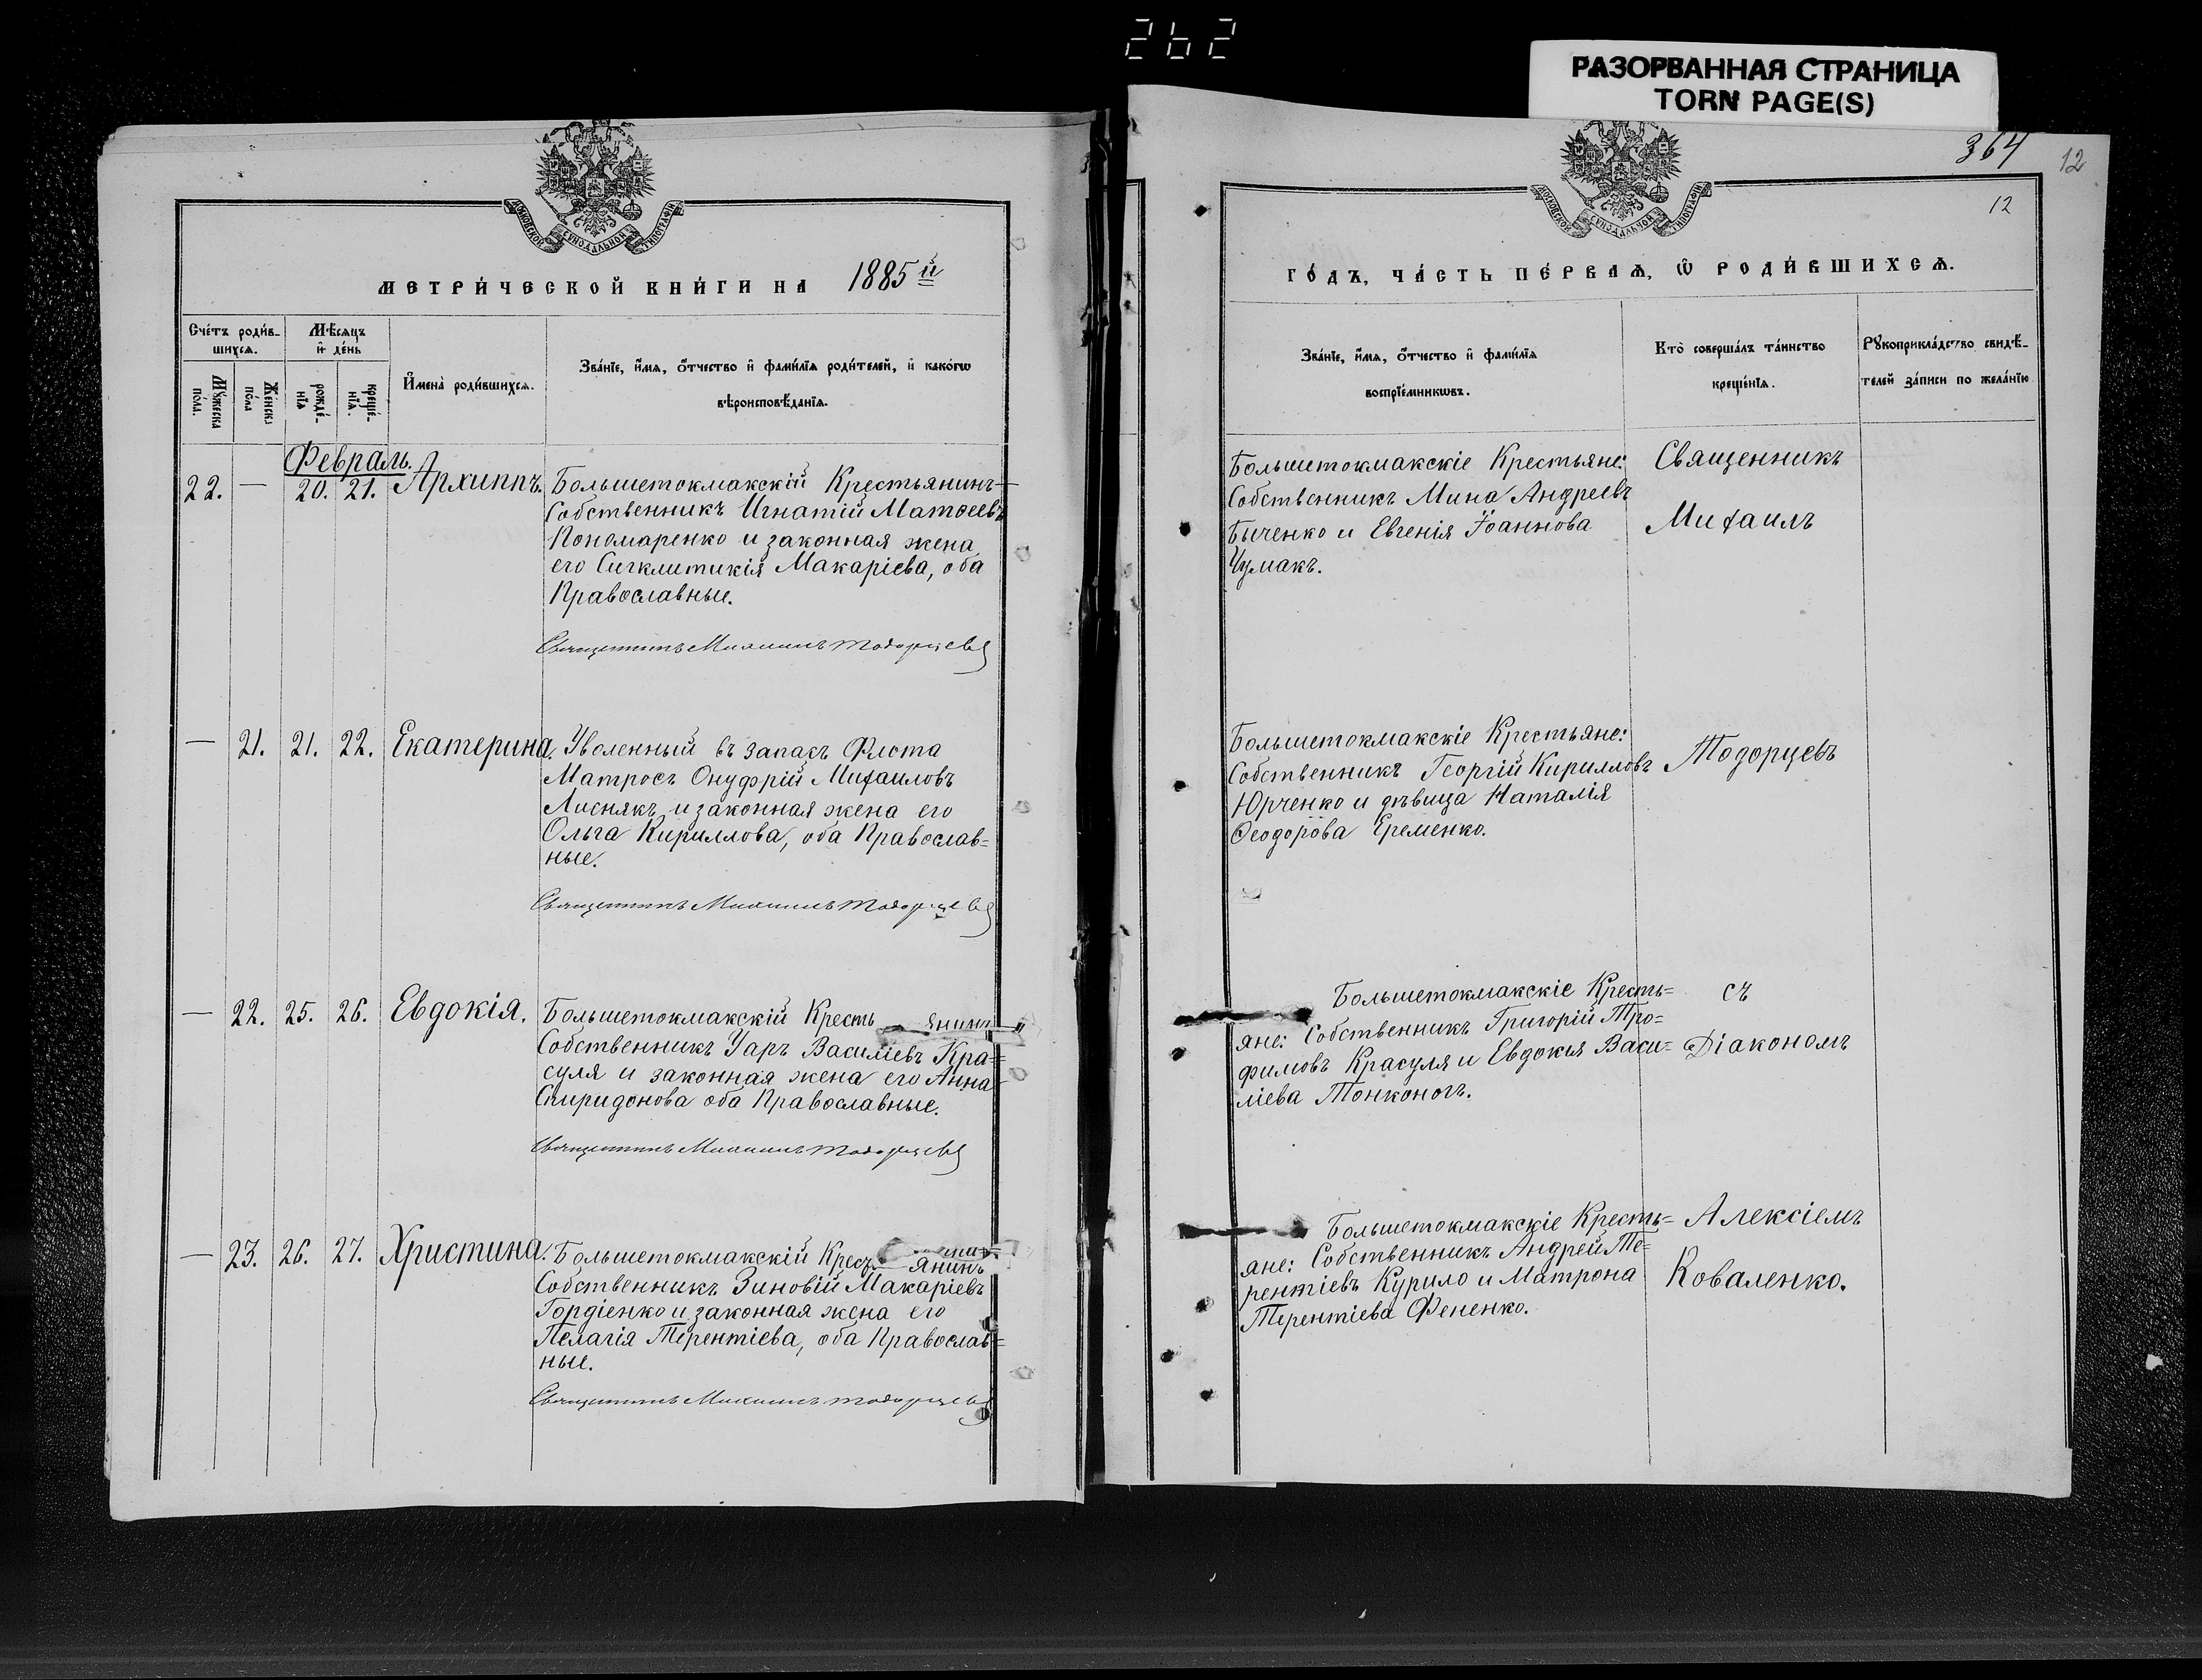 262
РАЗОРВАННАЯ СТРАНИЦА
TORN PAGE(S)
МОСКОВСКОЙ СѴНОДАЛЬНОЙ ТИПОГРАФІИ
МЕТРИ́ЧЕСКОЙ КНИ́ГИ НА 1885й
Сче́тъ роди́в-
шихсѧ.
Мѣ́сѧцъ
и҆ де́нь
Мꙋ́жеска
по́ла.
Же́нска
по́ла
рожде́-
нїѧ
креще́-
нїѧ.
И҆мена̀ роди́вшихсѧ.
Зва́нїе, и҆́мѧ, ѻ҆́тчество и҆ фами́лїѧ роди́телей, и҆ како́гѡ
вѣроисповѣ́данїѧ.
Февраль.
22. — 20. 21. Архиппъ. Большетокмакскій Крестьянинъ
Собственникъ Игнатій Матѳеевъ
Пономаренко и законная жена
его Сигклитикія Макаріева, оба
Православные.
Священникъ Михаилъ Тодорцевъ
— 21. 21. 22. Екатерина. Уволенный въ запасъ Флота
Матросъ Онуфрій Михаиловъ
Лиснякъ и законная жена его
Ольга Кириллова, оба Православ=
ные.
Священникъ Михаилъ Тодорцевъ
— 22. 25. 26. Евдокія. Большетокмакскій Кресть янинъ
Собственникъ Уаръ Василіевъ Кра=
суля и законная жена его Анна
Спиридонова оба Православные.
Священникъ Михаилъ Тодорцевъ
— 23. 26. 27. Христина. Большетокмакскій Кресть янинъ
Собственникъ Зиновій Макаріевъ
Гордіенко и законная жена его
Пелагія Терентіева, оба Православ=
ные.
Священникъ Михаилъ Тодорцевъ
364
12
12
МОСКОВСКОЙ СѴНОДАЛЬНОЙ ТИПОГРАФІИ
ГО́ДЪ, ЧА́СТЬ ПЕ́РВАѦ, Ѡ҆ РОДИ́ВШИХСѦ.
Зва́нїе, и҆́мѧ, ѻ҆́тчество и҆ фами́лїѧ
воспрїе́мникѡвъ.
Кто̀ соверша́лъ та́инство
креще́нїѧ.
Рꙋкоприкла́дство свидѣ́-
телей за́писи по жела́нїю
Большетокмакскіе Крестьяне:
Собственникъ Мина Андреевъ
Быченко и Евгенія Іоаннова
Чумакъ.
Священникъ
Михаилъ
Большетокмакскіе Крестьяне:
Собственникъ Георгій Кирилловъ
Юрченко и дѣвица Наталія
Ѳеодорова Еременко.
Тодорцевъ
Большетокмакскіе Кресть=
яне: Собственникъ Григорій Тро=
фимовъ Красуля и Евдокія Васи=
ліева Тонконогъ.
съ
Діакономъ
Большетокмакскіе Кресть=
яне: Собственникъ Андрей Те=
рентіевъ Курило и Матрона
Терентіева Фененко.
Алексіемъ
Коваленко.